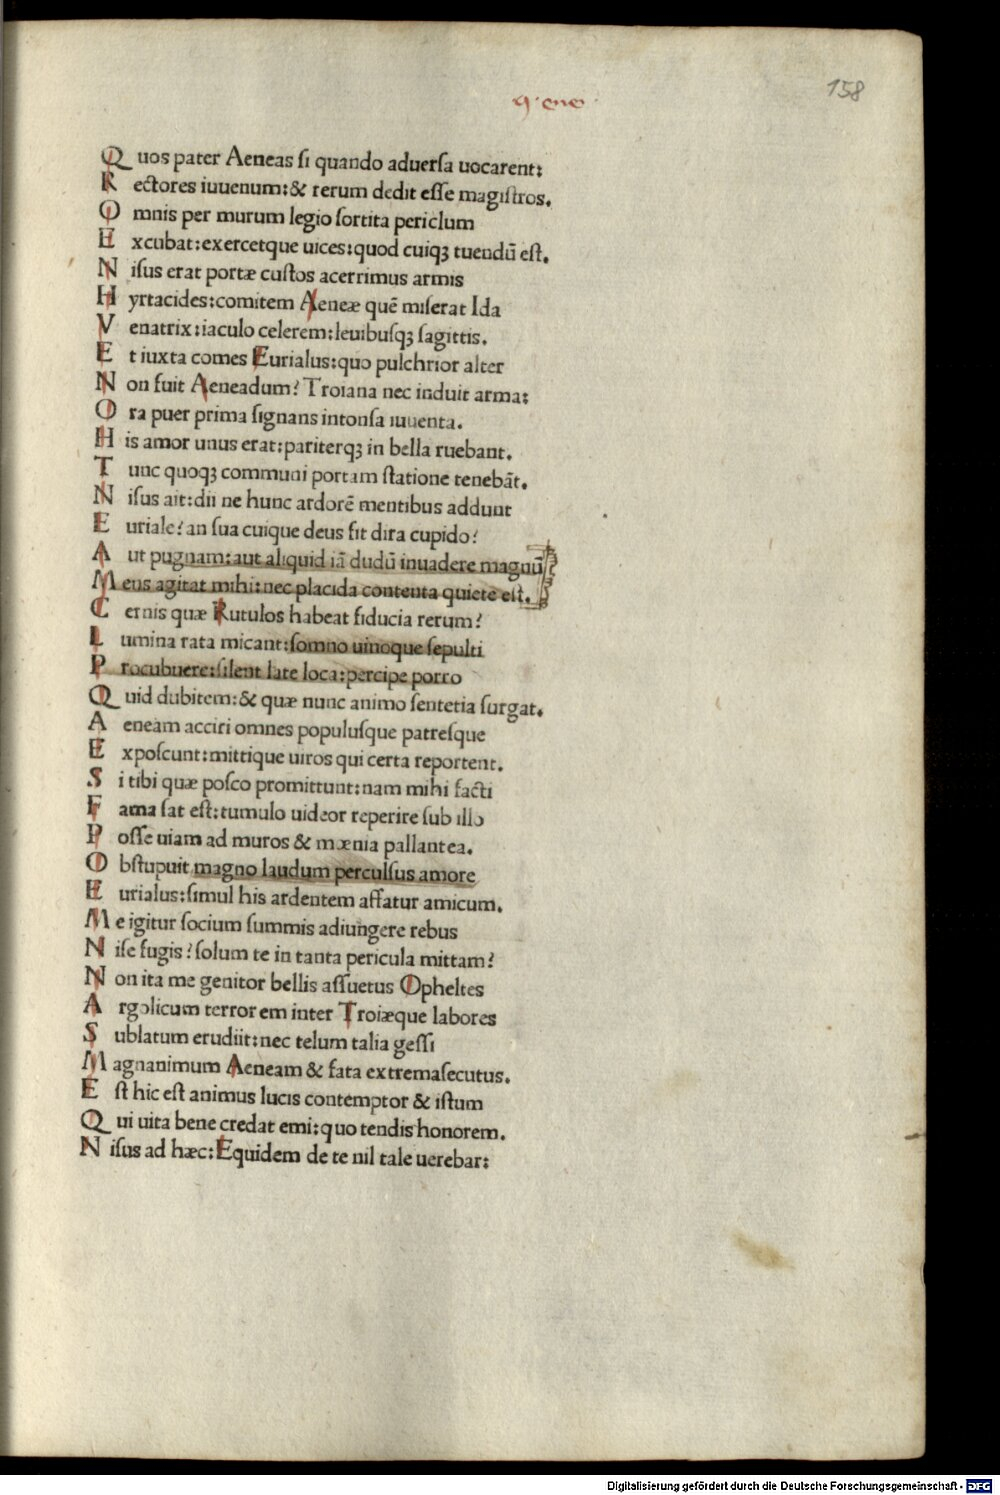 158
9 · ene ·
Quos pater Aeneas ſi quando aduerſa uocarent:
Rectores iuuenum:& rerum dedit eſſe magiſtros.
Omnis per murum legio ſortita periclum
Excubat:exercetque uices:quod cuiqꝫ tuendū eſt.
Niſus erat portæ cuſtos acerrimus armis
Hyrtacides:comitem Aeneæ quē miſerat Ida
Venatrix:iaculo celerem:leuibuſqꝫ ſagittis.
Et iuxta comes Eurialus:quo pulchrior alter
Non fuit Aeneadum? Troiana nec induit arma:
Ora puer prima ſignans intonſa iuuenta.
His amor unus erat:pariterqꝫ in bella ruebant.
Tunc quoqꝫ communi portam ſtatione tenebāt.
Niſus ait:dii ne hunc ardorē mentibus addunt
Euriale? an ſua cuique deus fit dira cupido?
Aut pugnam:aut aliquid iā dudū inuadere magnū
Mens agitat mihi:nec placida contenta quiete eſt.
Cernis quæ Rutulos habeat fiducia rerum?
Lumina rata micant:ſomno uinoque ſepulti
Procubuere:ſilent late loca:percipe porro
Quid dubitem:& quæ nunc animo ſentetia ſurgat.
Aeneam acciri omnes populuſque patreſque
Expoſcunt:mittique uiros qui certa reportent.
Si tibi quæ poſco promittunt:nam mihi facti
Fama ſat eſt:tumulo uideor reperire ſub illo
Poſſe uiam ad muros & mœnia pallantea.
Obſtupuit magno laudum perculſus amore
Eurialus:ſimul his ardentem affatur amicum.
Me igitur ſocium ſummis adiungere rebus
Niſe fugis? ſolum te in tanta pericula mittam?
Non ita me genitor bellis aſſuetus Opheltes
Argolicum terrorem inter Troiæque labores
Sublatum erudiit:nec telum talia geſſi
Magnanimum Aeneam & fata extremaſecutus.
Eſt hic eſt animus lucis contemptor & iſtum
Qui uita bene credat emi:quo tendis honorem.
Niſus ad hæc:Equidem de te nil tale uerebar:
Digitalisierung gefördert durch die Deutsche Forschungsgemeinschaft - DFG